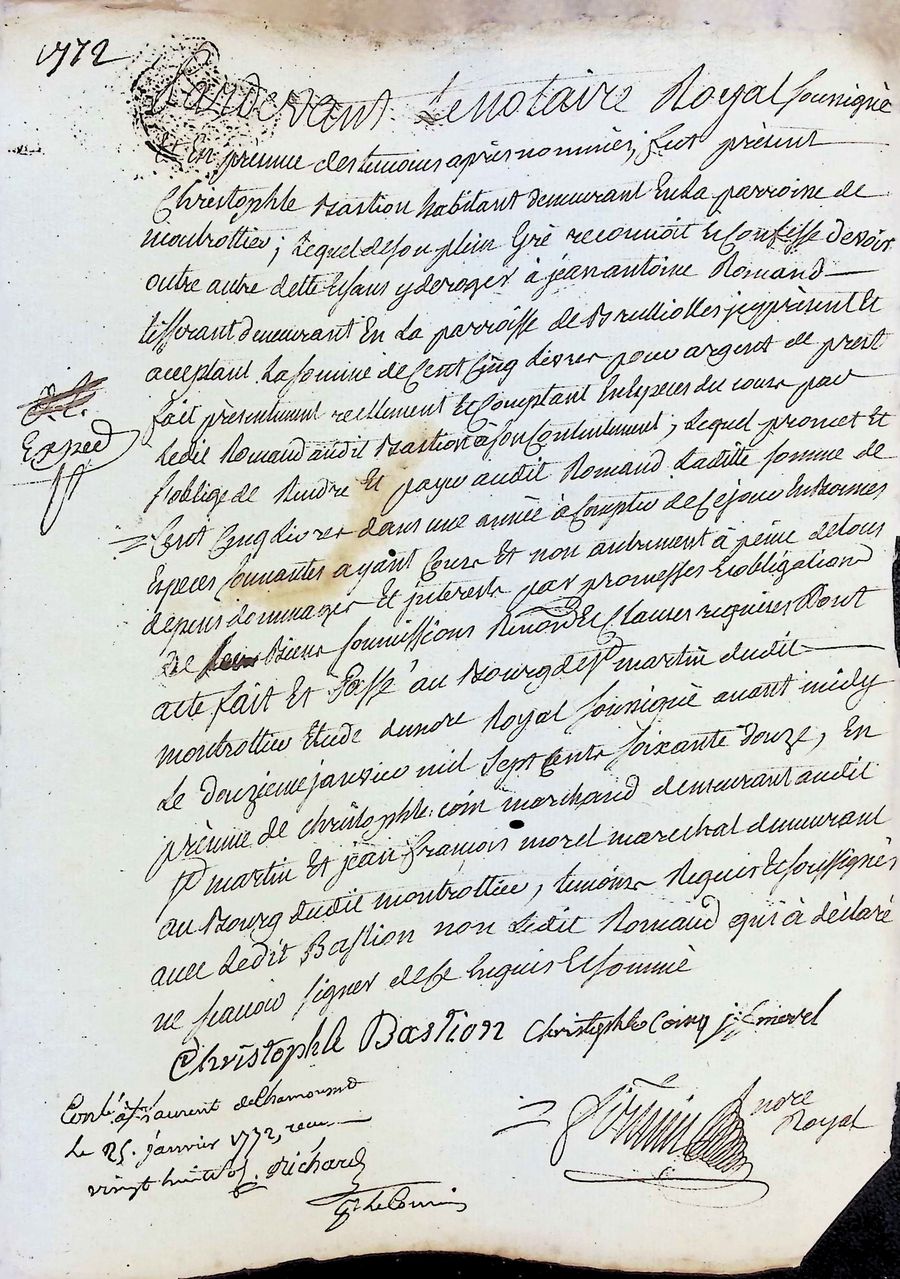 1772
Pardevant Le notaire Royal soussigné
Et En presence des temoins après nommés, fut présent
Christophle Bastion habitant demeurant En La parroisse de
montrottier; Lequel de son plein Gré reconnoit Et Confesse devoir
outre autre dette Et sans y deroger à jean antoine Romand
tisserant demeurant En La parroisse de Brullioles jcy présent Et
acceptant La somme de Cent Cinq Livres pour argent de prest
fait présentement reellement Et Comptant En Especes du cours par
Ledit Romand audit Bastion à son Contentement, Lequel promet Et
s'oblige de Rendre Et payer audit Romand Laditte somme de
Cent Cinq Livres dans une année à Compter de Ce jour En Bonnes
Especes sonnantes ayant Cours Et non autrement à peine de tous
depens dommages Et jnterests par promesses Et obligation
De Biens soumissions Renon et Clauses requises Dont
acte fait Et Passé au Bourg de St martin dudit
montrottier Etude du nore Royal soussigné avant midy
Le douzieme janvier mil sept Cents soixante douze, En
présence de christophle coin marchand demeurant audit
St martin Et jean François morel marechal demeurant
au Bourg dudit montrottier, temoins Requis Et soussignés
avec Ledit Bastion non Ledit Romand qui à déclaré
ne scavoir signer de Ce Enquis Et sommé
Christophle Bastion Christophle Coing j: f morel
Exped
Conlé à St Laurent de Chamousset
Le 25. janvier 1772, recu
vingt huit sols Richard
nore
Royal